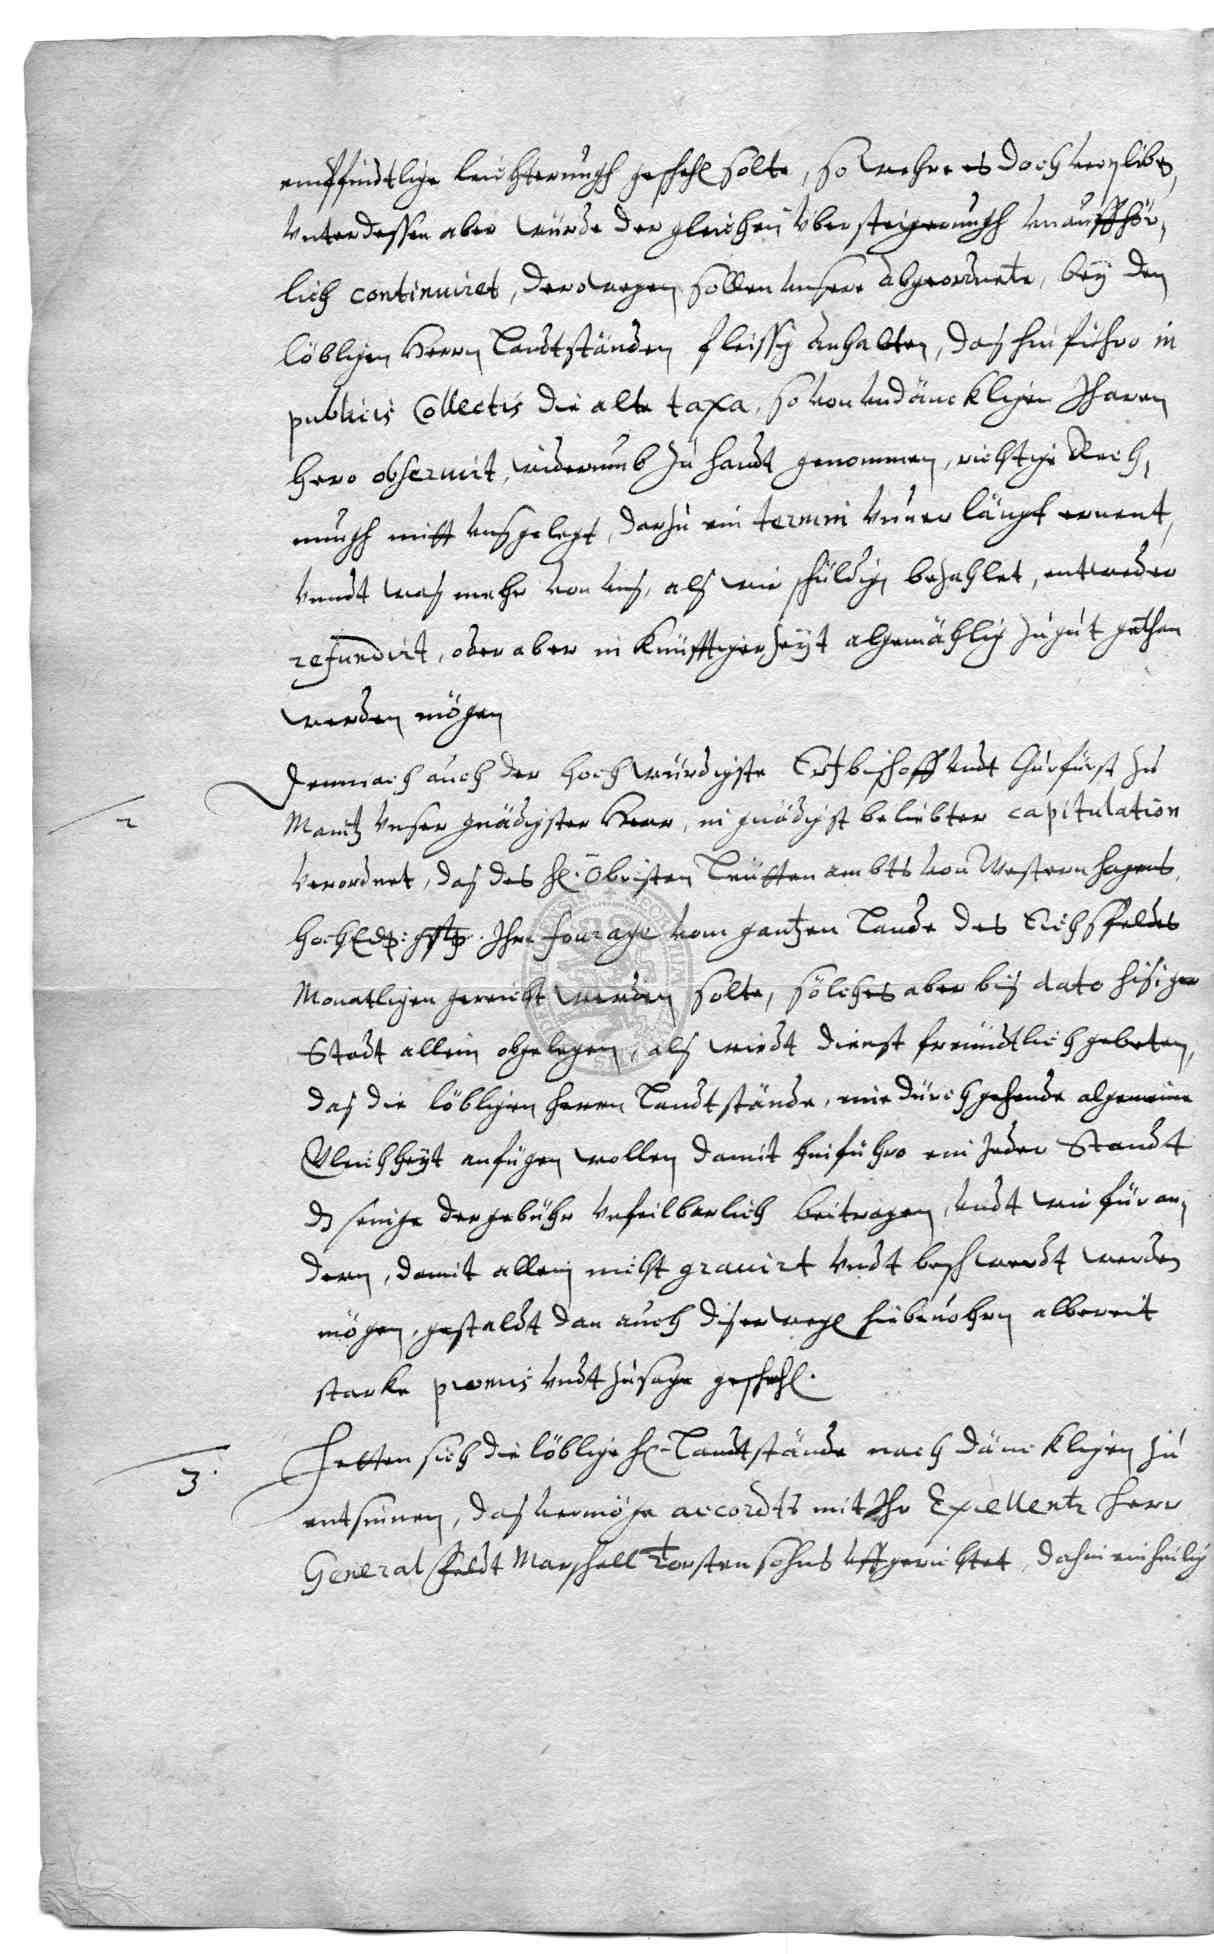 empfindtliche leichterungh geschehen solte, so wehre es doch vergebs,
Unterdessen aber würde der gleichen übersteigerungh unauffhör,
lich continuiret, derowegen sollen unsere abgeordnete, bey den
löblichen Herrn Landtständen fleissig anhalten, das hinführo in
publicis Collectis die alte taxa, so von undäncklichen Jharen
hero observirt, widerumb zu handt genommen, richtige Rech,
nungh mitt uns gelegt, darzu ein termin unverlängt ernent,
unndt was mehr von uns, als wir schüldig bezahlet, entweder
refundirt, oder aber in künfftiger Zeyt algemählig zu gut gethan
werden mögen
2 Demnach auch der hochwürdigste Ertzbischoff undt Churfürst zu
Maintz unser gnädigster Herr, in gnädigst beliebter capitulation
verordnet, das des H. Obristen Leuttenambts von Westernhagens
HochEdl: Ihre fourage vom gantzen Lande des Eichsfeldes
Monatlichen gereicht werden solte, solches aber bis dato hisiger
Stadt allein obgelegen, als wirdt dienst freündtlich gebeten,
das die löblichen herrn Landtstände, eine durchgehende algemeine
Gleichheyt anfügen wollen damit hinführo ein Jeder Standt
dz seinige der gebühr unfeilbarlich beitragen, undt wir für an,
dern, damit allein nicht gravirt undt beschwerdt werden
mögen, gestaldt dan auch diserwegen hiebevohrn albereit
starke promis undt zusage geschehen.
3. Hetten sich die löbliche H. Landtstände nach däncklichen zu
entsinnen, das vermöge accordts mit Ihr Excellentz Herr
General Feldt Marschall Torstensohns uffgerichtet, dahin einheilig